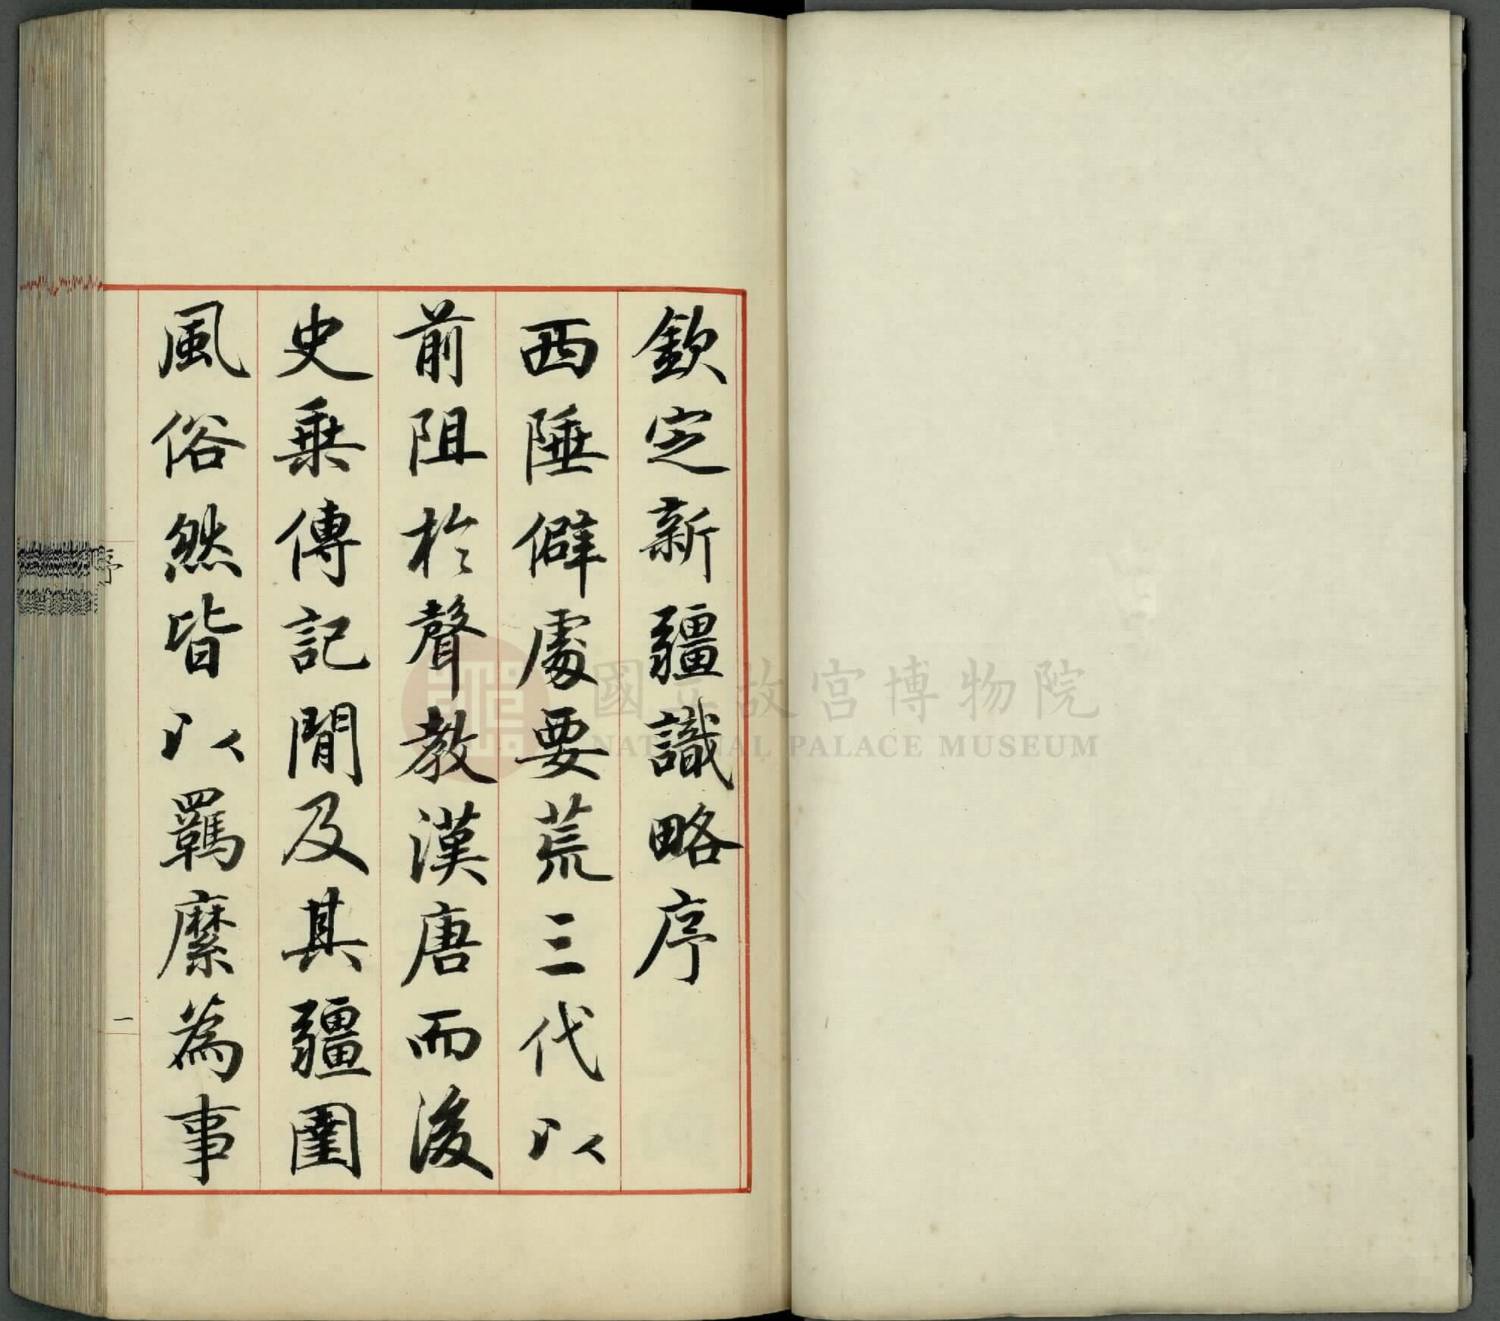 欽定新疆識略序
西陲僻處要荒三代以
前阻於聲教漢唐而後
史乗傳記間及其疆圉
風俗然皆以羈縻為事
序
一
國立故宮博物院
NATIONAL PALACE MUSEUM